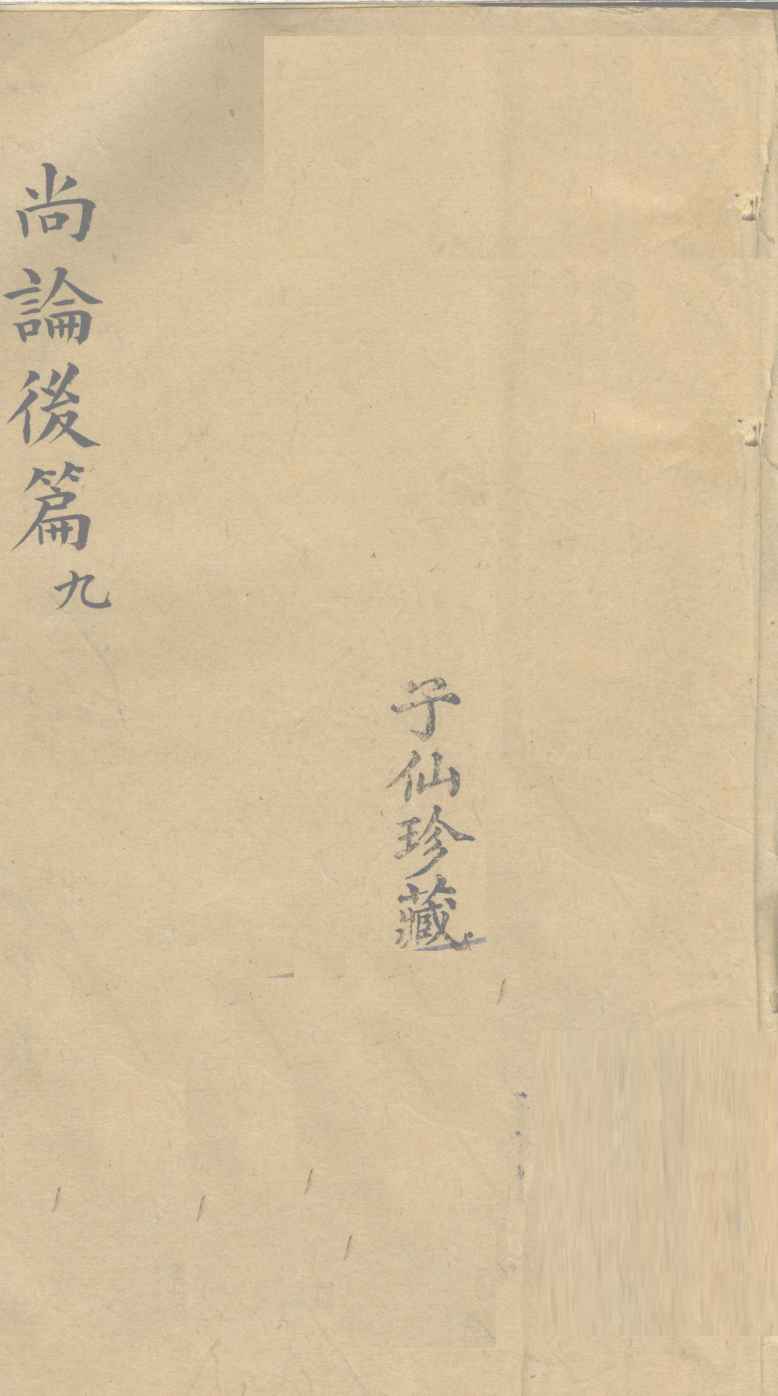 子仙珍藏
尚論後篇九